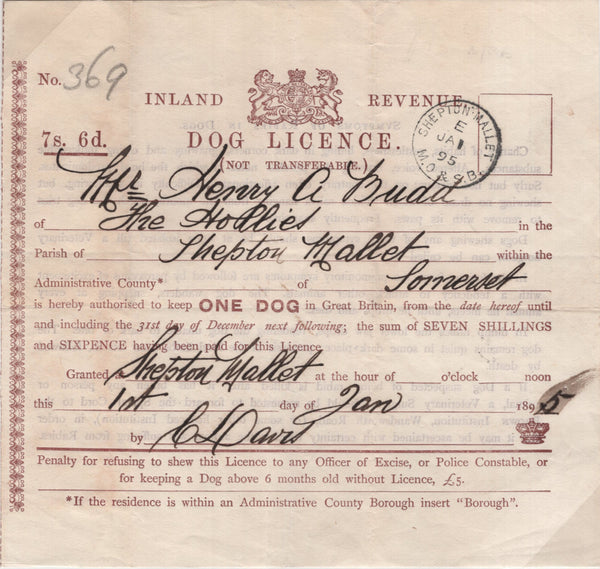 No. 369
INLAND REVENUE
SHEPTON-MALLET
E
JA 1
95
M.O & S.B.
7s. 6d. DOG LICENCE.
(NOT TRANSFERABLE.)
Mr Henry A Budd
of The Hollies in the
Parish of Shepton Mallet within the
Administrative County* of Somerset
is hereby authorised to keep ONE DOG in Great Britain, from the date hereof until
and including the 31st day of December next following; the sum of SEVEN SHILLINGS
and SIXPENCE having been paid for this Licence.
Granted at Shepton Mallet at the hour of o'clock noon
this 1st day of Jan 1895
by C Davis
Penalty for refusing to shew this Licence to any Officer of Excise, or Police Constable, or
for keeping a Dog above 6 months old without Licence, £5.
*If the residence is within an Administrative County Borough insert "Borough".